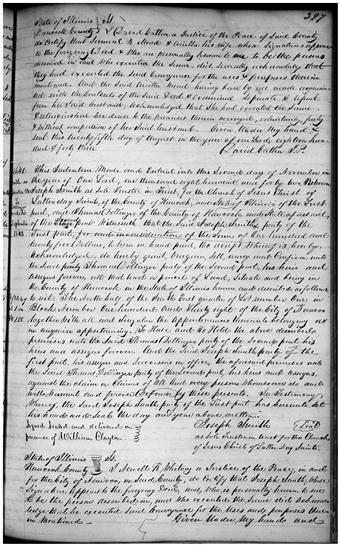 397
State of Illinois } ss
Hancock County } I David Catlin a Justice of the Peace of Said County
do certify that Samuel B. & wife, whose Signatures appear
to the foregoing Deed & who are personally known to me to be the persons
described in and who executed the Same, did Severally acknowledge that
they had executed the Said Conveyance for the uses & purposes therein
mentioned. And the Said having been by me made acquainted
with the contents of the Said Deed & examined Separate & apart
from her Said husband, acknowledged that She had executed the Same
& relinquished her dower to the premises therein conveyed, voluntarily, freely
& without compulsion of her Said husband. Given Under my hand &
Seal this twenty fifth day of August in the year of our Lord, eighteen hundred
and forty
David Catlin J.P.
This Indenture Made and Entered into this Second day of November in
the year of Our Lord, One thousand eight hundred and forty two Between
Joseph Smith as Sole Trustee in Trust, for the Church of Jesus Christ of
Latter day Saints, of the County of Hancock, and State of Illinois of the first
part, and Thomas Dollinger of the County of Hancock and State aforesaid,
of the Second part, Witnesseth that the Said Joseph Smith, party of the
first part, for and in consideration of the Sum of One Hundred and
twenty five Dollars, to him in hand paid, the receipt Whereof is hereby
acknowledged, do hereby grant, bargain, Sell, convey and Confirm unto
the Said Thomas Dollinger party of the Second part, his heirs and
assigns forever, all that tract or parcel of Land, Situate and lying in
the County of Hancock in the State of Illinois known and described as follows
to wit: The South half of the South East quarter of Lot number One in
Block Number One hundred and Thirty eight of the City of Nauvoo
Together With all and Singular the Appurtenances thereunto belonging or
in anywise appertaining. To Have and to Hold the above described
premises unto the Said Thomas Dollinger party of the Second part his
heirs and assigns forever. And the Said Joseph Smith party of the
first part, his assigns and Successors in office, the aforesaid premises unto
the Said Thomas Dollinger party of the Second part, his heirs and assigns,
against the claim or Claims of All and every persons Whomsoever do and
will Warrant and forever Defend by these presents. In Testimony
Whereof, the Said Joseph Smith party of the first part has hereunto Set
his hand and Seal the day and year above written.
Signed Sealed and delivered in } Joseph Smith Seal
presence of William Clayton } as Sole Trustee in trust for the Church
of Jesus Christ of Latter Day Saints.
State of Illinois } ss
Hancock County } I Newell K. Whitney a Justice of the Peace, in and
for the City of Nauvoo, in Said County, do Certify that Joseph Smith, whose
Signature appears to the foregoing Deed, and, who, is personally known to me
to be the person described in, and who executed the Same, did acknow
ledge that he executed Said Conveyance for the Uses and purposes there
in Mentioned. Given Under My hand and